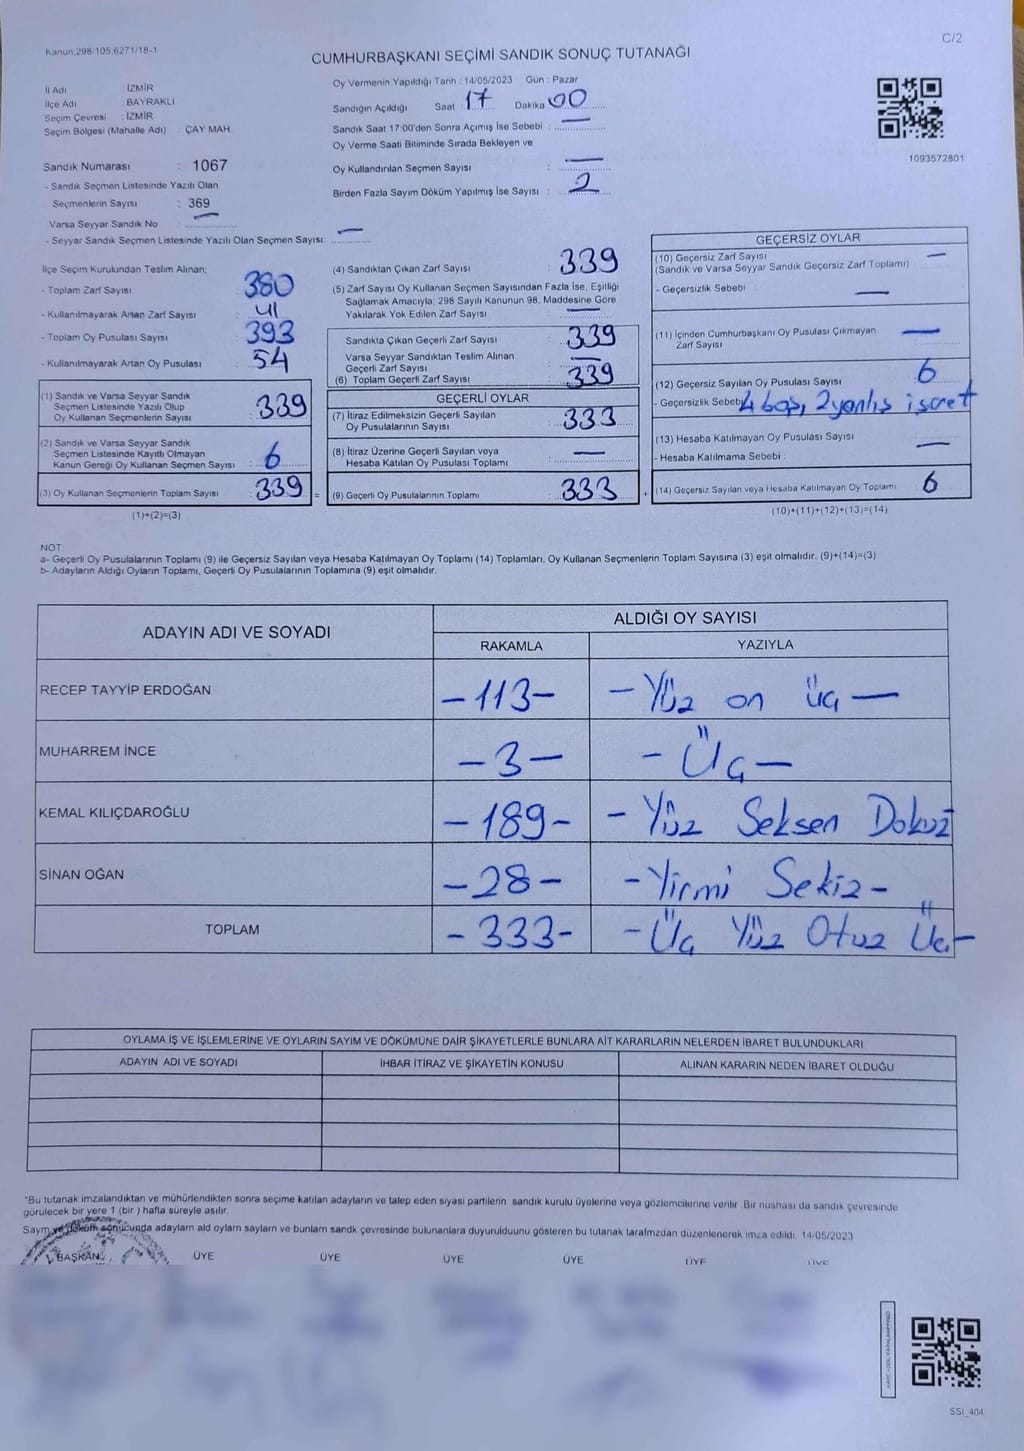 Kanun:298/105,6271/18-1
C/2
CUMHURBAŞKANI SEÇİMİ SANDIK SONUÇ TUTANAĞI
İl Adı : İZMİR
İlçe Adı : BAYRAKLI
Seçim Çevresi : İZMİR
Seçim Bölgesi (Mahalle Adı) : ÇAY MAH.
Sandık Numarası : 1067
- Sandık Seçmen Listesinde Yazılı Olan
Seçmenlerin Sayısı : 369
Varsa Seyyar Sandık No : —
- Seyyar Sandık Seçmen Listesinde Yazılı Olan Seçmen Sayısı: —
Oy Vermenin Yapıldığı Tarih : 14/05/2023 Gün : Pazar
Sandığın Açıldığı Saat 17 Dakika 00
Sandık Saat 17:00'den Sonra Açımış İse Sebebi : —
Oy Verme Saati Bitiminde Sırada Bekleyen ve
Oy Kullandırılan Seçmen Sayısı : —
Birden Fazla Sayım Döküm Yapılmış İse Sayısı : 2
1093572801
İlçe Seçim Kurulundan Teslim Alınan;
- Toplam Zarf Sayısı : 380
- Kullanılmayarak Artan Zarf Sayısı : 41
- Toplam Oy Pusulası Sayısı : 393
- Kullanılmayarak Artan Oy Pusulası : 54
(1) Sandık ve Varsa Seyyar Sandık
Seçmen Listesinde Yazılı Olup
Oy Kullanan Seçmenlerin Sayısı : 339
(2) Sandık ve Varsa Seyyar Sandık
Seçmen Listesinde Kayıtlı Olmayan
Kanun Gereği Oy Kullanan Seçmen Sayısı : 6
(3) Oy Kullanan Seçmenlerin Toplam Sayısı : 339 =
(1)+(2)=(3)
(4) Sandıktan Çıkan Zarf Sayısı : 339
(5) Zarf Sayısı Oy Kullanan Seçmen Sayısından Fazla İse, Eşitliği
Sağlamak Amacıyla; 298 Sayılı Kanunun 98. Maddesine Göre
Yakılarak Yok Edilen Zarf Sayısı : —
Sandıkta Çıkan Geçerli Zarf Sayısı : 339
Varsa Seyyar Sandıktan Teslim Alınan
Geçerli Zarf Sayısı : —
(6) Toplam Geçerli Zarf Sayısı : 339
GEÇERLİ OYLAR
(7) İtiraz Edilmeksizin Geçerli Sayılan
Oy Pusulalarının Sayısı : 333
(8) İtiraz Üzerine Geçerli Sayılan veya
Hesaba Katılan Oy Pusulası Toplamı : —
(9) Geçerli Oy Pusulalarının Toplamı : 333 +
GEÇERSİZ OYLAR
(10) Geçersiz Zarf Sayısı : —
(Sandık ve Varsa Seyyar Sandık Geçersiz Zarf Toplamı)
- Geçersizlik Sebebi : —
(11) İçinden Cumhurbaşkanı Oy Pusulası Çıkmayan
Zarf Sayısı : —
(12) Geçersiz Sayılan Oy Pusulası Sayısı : 6
- Geçersizlik Sebebi : 4 boş, 2 yanlış işaret
(13) Hesaba Katılmayan Oy Pusulası Sayısı : —
- Hesaba Katılmama Sebebi :
(14) Geçersiz Sayılan veya Hesaba Katılmayan Oy Toplamı : 6
(10)+(11)+(12)+(13)=(14)
NOT
a- Geçerli Oy Pusulalarının Toplamı (9) ile Geçersiz Sayılan veya Hesaba Katılmayan Oy Toplamı (14) Toplamları, Oy Kullanan Seçmenlerin Toplam Sayısına (3) eşit olmalıdır. (9)+(14)=(3)
b- Adayların Aldığı Oyların Toplamı, Geçerli Oy Pusulalarının Toplamına (9) eşit olmalıdır.
ADAYIN ADI VE SOYADI ALDIĞI OY SAYISI
RAKAMLA YAZIYLA
RECEP TAYYİP ERDOĞAN -113- - Yüz on üç -
MUHARREM İNCE -3- - Üç -
KEMAL KILIÇDAROĞLU -189- - Yüz Seksen Dokuz
SİNAN OĞAN -28- - Yirmi Sekiz -
TOPLAM -333- - Üç Yüz Otuz Üç -
OYLAMA İŞ VE İŞLEMLERİNE VE OYLARIN SAYIM VE DÖKÜMÜNE DAİR ŞİKAYETLERLE BUNLARA AİT KARARLARIN NELERDEN İBARET BULUNDUKLARI
ADAYIN ADI VE SOYADI İHBAR İTİRAZ VE ŞİKAYETİN KONUSU ALINAN KARARIN NEDEN İBARET OLDUĞU
*Bu tutanak imzalandıktan ve mühürlendikten sonra seçime katılan adayların ve talep eden siyasi partilerin sandık kurulu üyelerine veya gözlemcilerine verilir. Bir nushası da sandık çevresinde
görülecek bir yere 1 (bir ) hafta süreyle asılır.
Sayım ve döküm sonucunda adayların ald oyların sayların ve bunların sandk çevresinde bulunanlara duyurulduunu gösteren bu tutanak tarafmzdan düzenlenerek imza edildi. 14/05/2023
BAŞKAN ÜYE ÜYE ÜYE ÜYE ÜYE ÜYE
SSI_404